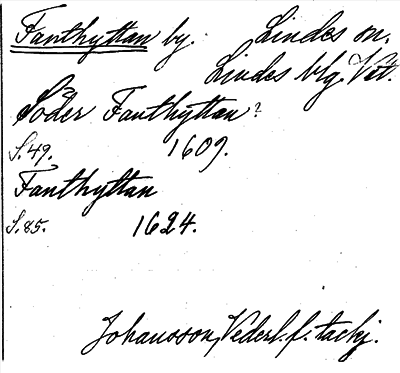 Fanthyttan by. Lindes sn.
Lindes blg. Vst.
Söder Fanthyttan?
S. 49. 1609.
Fanthyttan
S. 85. 1624.
Johansson, Vederl. f. tackj.